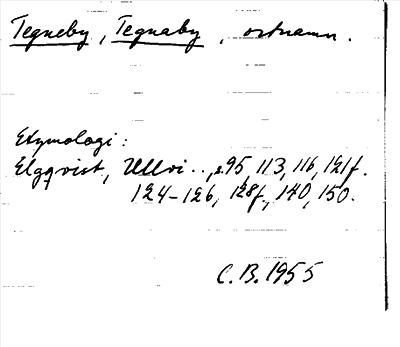 Tegneby, Tegnaby, ortnamn.
Etymologi:
Elgqvist, Ullvi.., s. 95, 113, 116, 121f.
124-126, 128f., 140, 150.
C.B. 1955